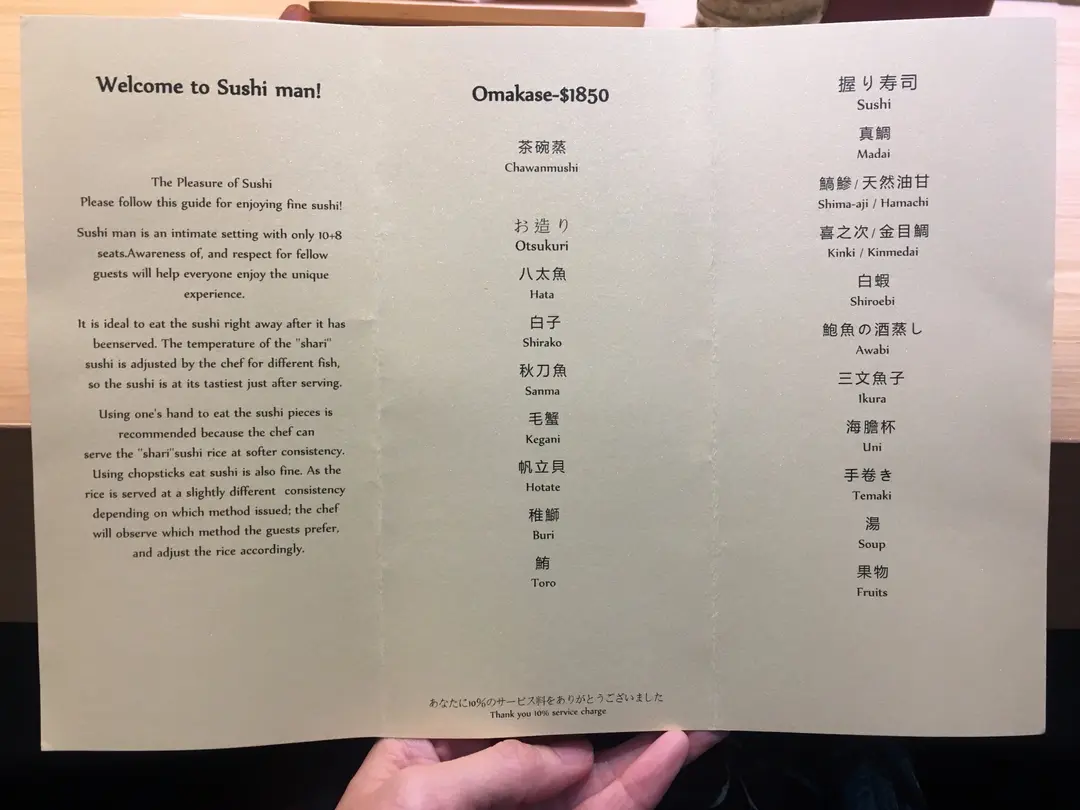 Welcome to Sushi man!
The Pleasure of Sushi
Please follow this guide for enjoying fine sushi!
Sushi man is an intimate setting with only 10+8
seats.Awareness of, and respect for fellow
guests will help everyone enjoy the unique
experience.
It is ideal to eat the sushi right away after it has
beenserved. The temperature of the "shari"
sushi is adjusted by the chef for different fish,
so the sushi is at its tastiest just after serving.
Using one's hand to eat the sushi pieces is
recommended because the chef can
serve the "shari"sushi rice at softer consistency.
Using chopsticks eat sushi is also fine. As the
rice is served at a slightly different consistency
depending on which method issued; the chef
will observe which method the guests prefer,
and adjust the rice accordingly.
Omakase-$1850
茶碗蒸
Chawanmushi
お造り
Otsukuri
八太魚
Hata
白子
Shirako
秋刀魚
Sanma
毛蟹
Kegani
帆立貝
Hotate
稚鰤
Buri
鮪
Toro
あなたに10%のサービス料をありがとうございました
Thank you 10% service charge
握り寿司
Sushi
真鯛
Madai
鰝鰺/天然油甘
Shima-aji / Hamachi
喜之次/金目鯛
Kinki / Kinmedai
白蝦
Shiroebi
鮑魚の酒蒸し
Awabi
三文魚子
Ikura
海膽杯
Uni
手巻き
Temaki
湯
Soup
果物
Fruits